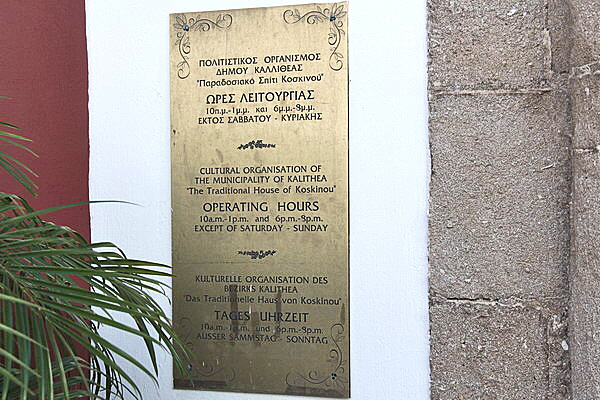 ΠΟΛΙΤΙΣΤΙΚΟΣ ΟΡΓΑΝΙΣΜΟΣ
ΔΗΜΟΥ ΚΑΛΛΙΘΕΑΣ
"Παραδοσιακό Σπίτι Κοσκινού"
ΩΡΕΣ ΛΕΙΤΟΥΡΓΙΑΣ
10π.μ.-1μ.μ. και 6μ.μ.-8μ.μ.
ΕΚΤΟΣ ΣΑΒΒΑΤΟΥ - ΚΥΡΙΑΚΗΣ
CULTURAL ORGANISATION OF
THE MUNICIPALITY OF KALITHEA
"The Traditional House of Koskinou"
OPERATING HOURS
10a.m.-1p.m. and 6p.m.-8p.m.
EXCEPT OF SATURDAY - SUNDAY
KULTURELLE ORGANISATION DES
BEZIRKS KALITHEA
"Das Traditionelle Haus von Koskinou"
TAGES UHRZEIT
10a.m.-1p.m. und 6p.m.-8p.m.
AUSSER SAMMSTAG - SONNTAG